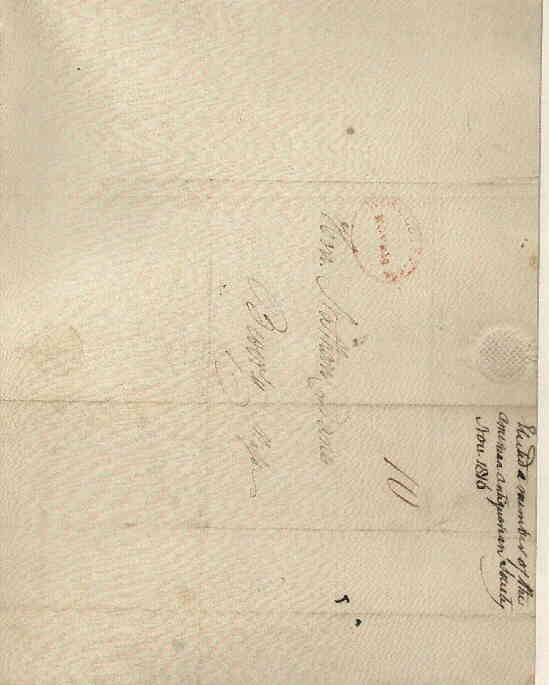 Hon. Nathan Dane
Beverly
10
Elected a member of the
American Antiquarian Society
Nov. 1816